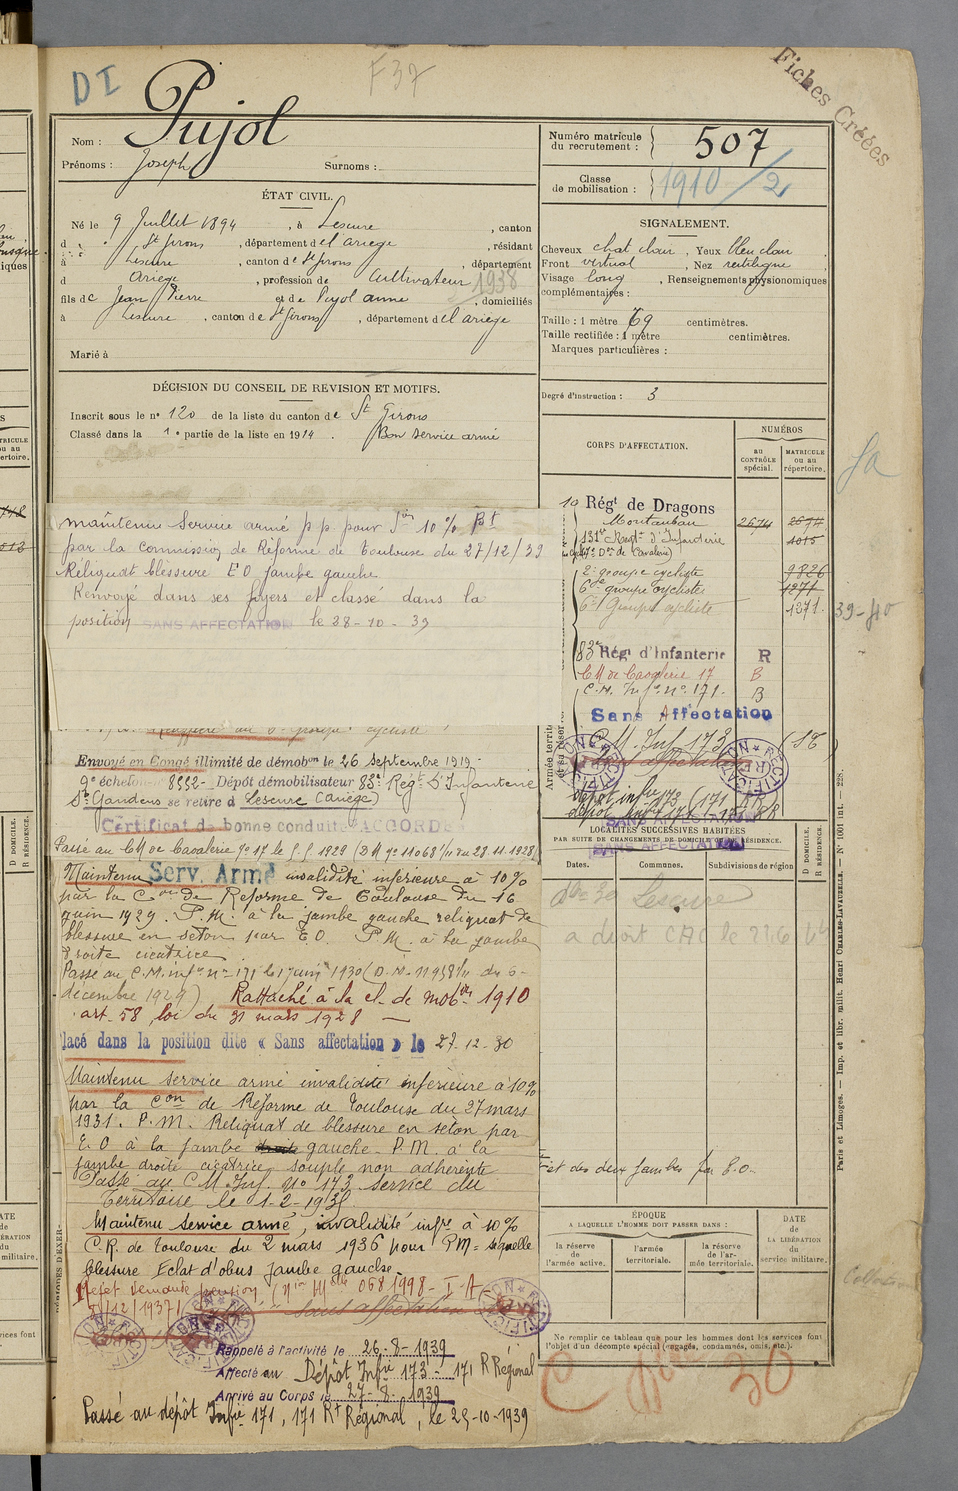 DI
F37
Fiches Créées
Nom : Pujol
Prénoms : Joseph Surnoms :
Numéro matricule du recrutement : 507
Classe de mobilisation : 1910/2
ÉTAT CIVIL.
Né le 9 Juillet 1894, à Lescure, canton
d St Girons, département de l'Ariège, résidant
à Lescure, canton de St Girons, département
d Ariège, profession de Cultivateur
1938
fils de Jean Pierre et de Pujol anne, domiciliés
à Lescure, canton de St Girons, département de l'Ariège
Marié à
SIGNALEMENT.
Cheveux chat clair, Yeux bleu clair
Front vertical, Nez rectiligne
Visage long, Renseignements physionomiques
complémentaires :
Taille : 1 mètre 69 centimètres.
Taille rectifiée : 1 mètre centimètres.
Marques particulières :
Degré d'instruction : 3
DÉCISION DU CONSEIL DE REVISION ET MOTIFS.
Inscrit sous le n° 120 de la liste du canton de St Girons
Classé dans la 1e partie de la liste en 1914. Bon service armé
maintenu Service armé p.p. pour Ion 10 % Bt
par la Commission de Réforme de Toulouse du 27/12/39
Reliquat blessure E O jambe gauche
Renvoyé dans ses foyers et classé dans la
position SANS AFFECTATION le 28-10-39
Réaffecté au 6e groupe cycliste
Envoyé en Congé illimité de démobon le 26 Septembre 1919
9e échelon 8552 - Dépôt démobilisateur 83e Régt d'Infanterie
St Gaudens se retire à Lescure (Ariège)
Certificat de bonne conduite ACCORDÉ
Passé au CM de Cavalerie no 17 le
Maintenu Serv. Armé invalidité inférieure à 10%
par la Con de Réforme de Toulouse du 16
juin 1929. P.M. à la jambe gauche reliquat de
blessure en seton par E.O. P.M. à la jambe
droite cicatrice.
Passé au C.M. infie no 171 le 1 juin 1930 (D.M. 11958/11 du 6-
décembre 1929) Rattaché à la cl. de mobon 1910
art. 58, loi du 31 mars 1928 —
lacé dans la position dite « Sans affectation » le 27-12-30
Maintenu service armé invalidité inférieure à 10%
par la Con de Réforme de Toulouse du 27 mars
1931. P.M. Reliquat de blessure en seton par
E.O à la jambe droite gauche. P.M. à la
jambe droite cicatrice souple non adhérente
Passé au C.M. Inf. no 173 service du
Territoire le 1-2-1935
Maintenu service armé, invalidité infre à 10%
C.R. de Toulouse du 2 mars 1936 pour PM = séquelle
blessure Eclat d'obus jambe gauche.
Rejet demande pension
8/12/1937)
sans affectation
RECTIFICATION
Rappelé à l'activité le 26-8-1939
Affecté au Dépôt Infie 173 - 171 R Régional
Arrivé au Corps le 27-8-1939
Passé au dépôt Infie 171, 171 Rt Régional, le 25-10-1939
CORPS D'AFFECTATION.
NUMÉROS
au CONTRÔLE spécial.
MATRICULE ou au répertoire.
10 Régt de Dragons
Montauban 2674 2674
131e Regt d'Infanterie 1015
2e groupe cycliste 9826
6e groupe cycliste 1271
6e Groupe cycliste 1371.
39-40
83e Régt d'Infanterie R
CM de Cavalerie 17 B
C.M. Infie no 171. B
Sans Affectation
C.M. Inf 173
Sans affectation
RECTIFICATION
Dépôt infie 173 (171 RR)
dépôt Infie 171 - 171 RR
SANS AFFECTATION
LOCALITÉS SUCCESSIVES HABITÉES
PAR SUITE DE CHANGEMENTS DE DOMICILE OU DE RÉSIDENCE.
SANS AFFECTATION
Dates. Communes. Subdivisions de région
D DOMICILE.
R RÉSIDENCE.
Lescure
a droit CAC le 2
Et des deux jambes par E.O.
ÉPOQUE
A LAQUELLE L'HOMME DOIT PASSER DANS :
la réserve de l'armée active.
l'armée territoriale.
la réserve de l'armée territoriale.
DATE de LA LIBÉRATION du service militaire.
Ne remplir ce tableau que pour les hommes dont les services font
l'objet d'un décompte spécial (engagés, condamnés, omis, etc.).
30
Paris et Limoges. — Imp. et libr. milit. Henri CHARLES-LAVAUZELLE. — N° 1001 int. — 228.